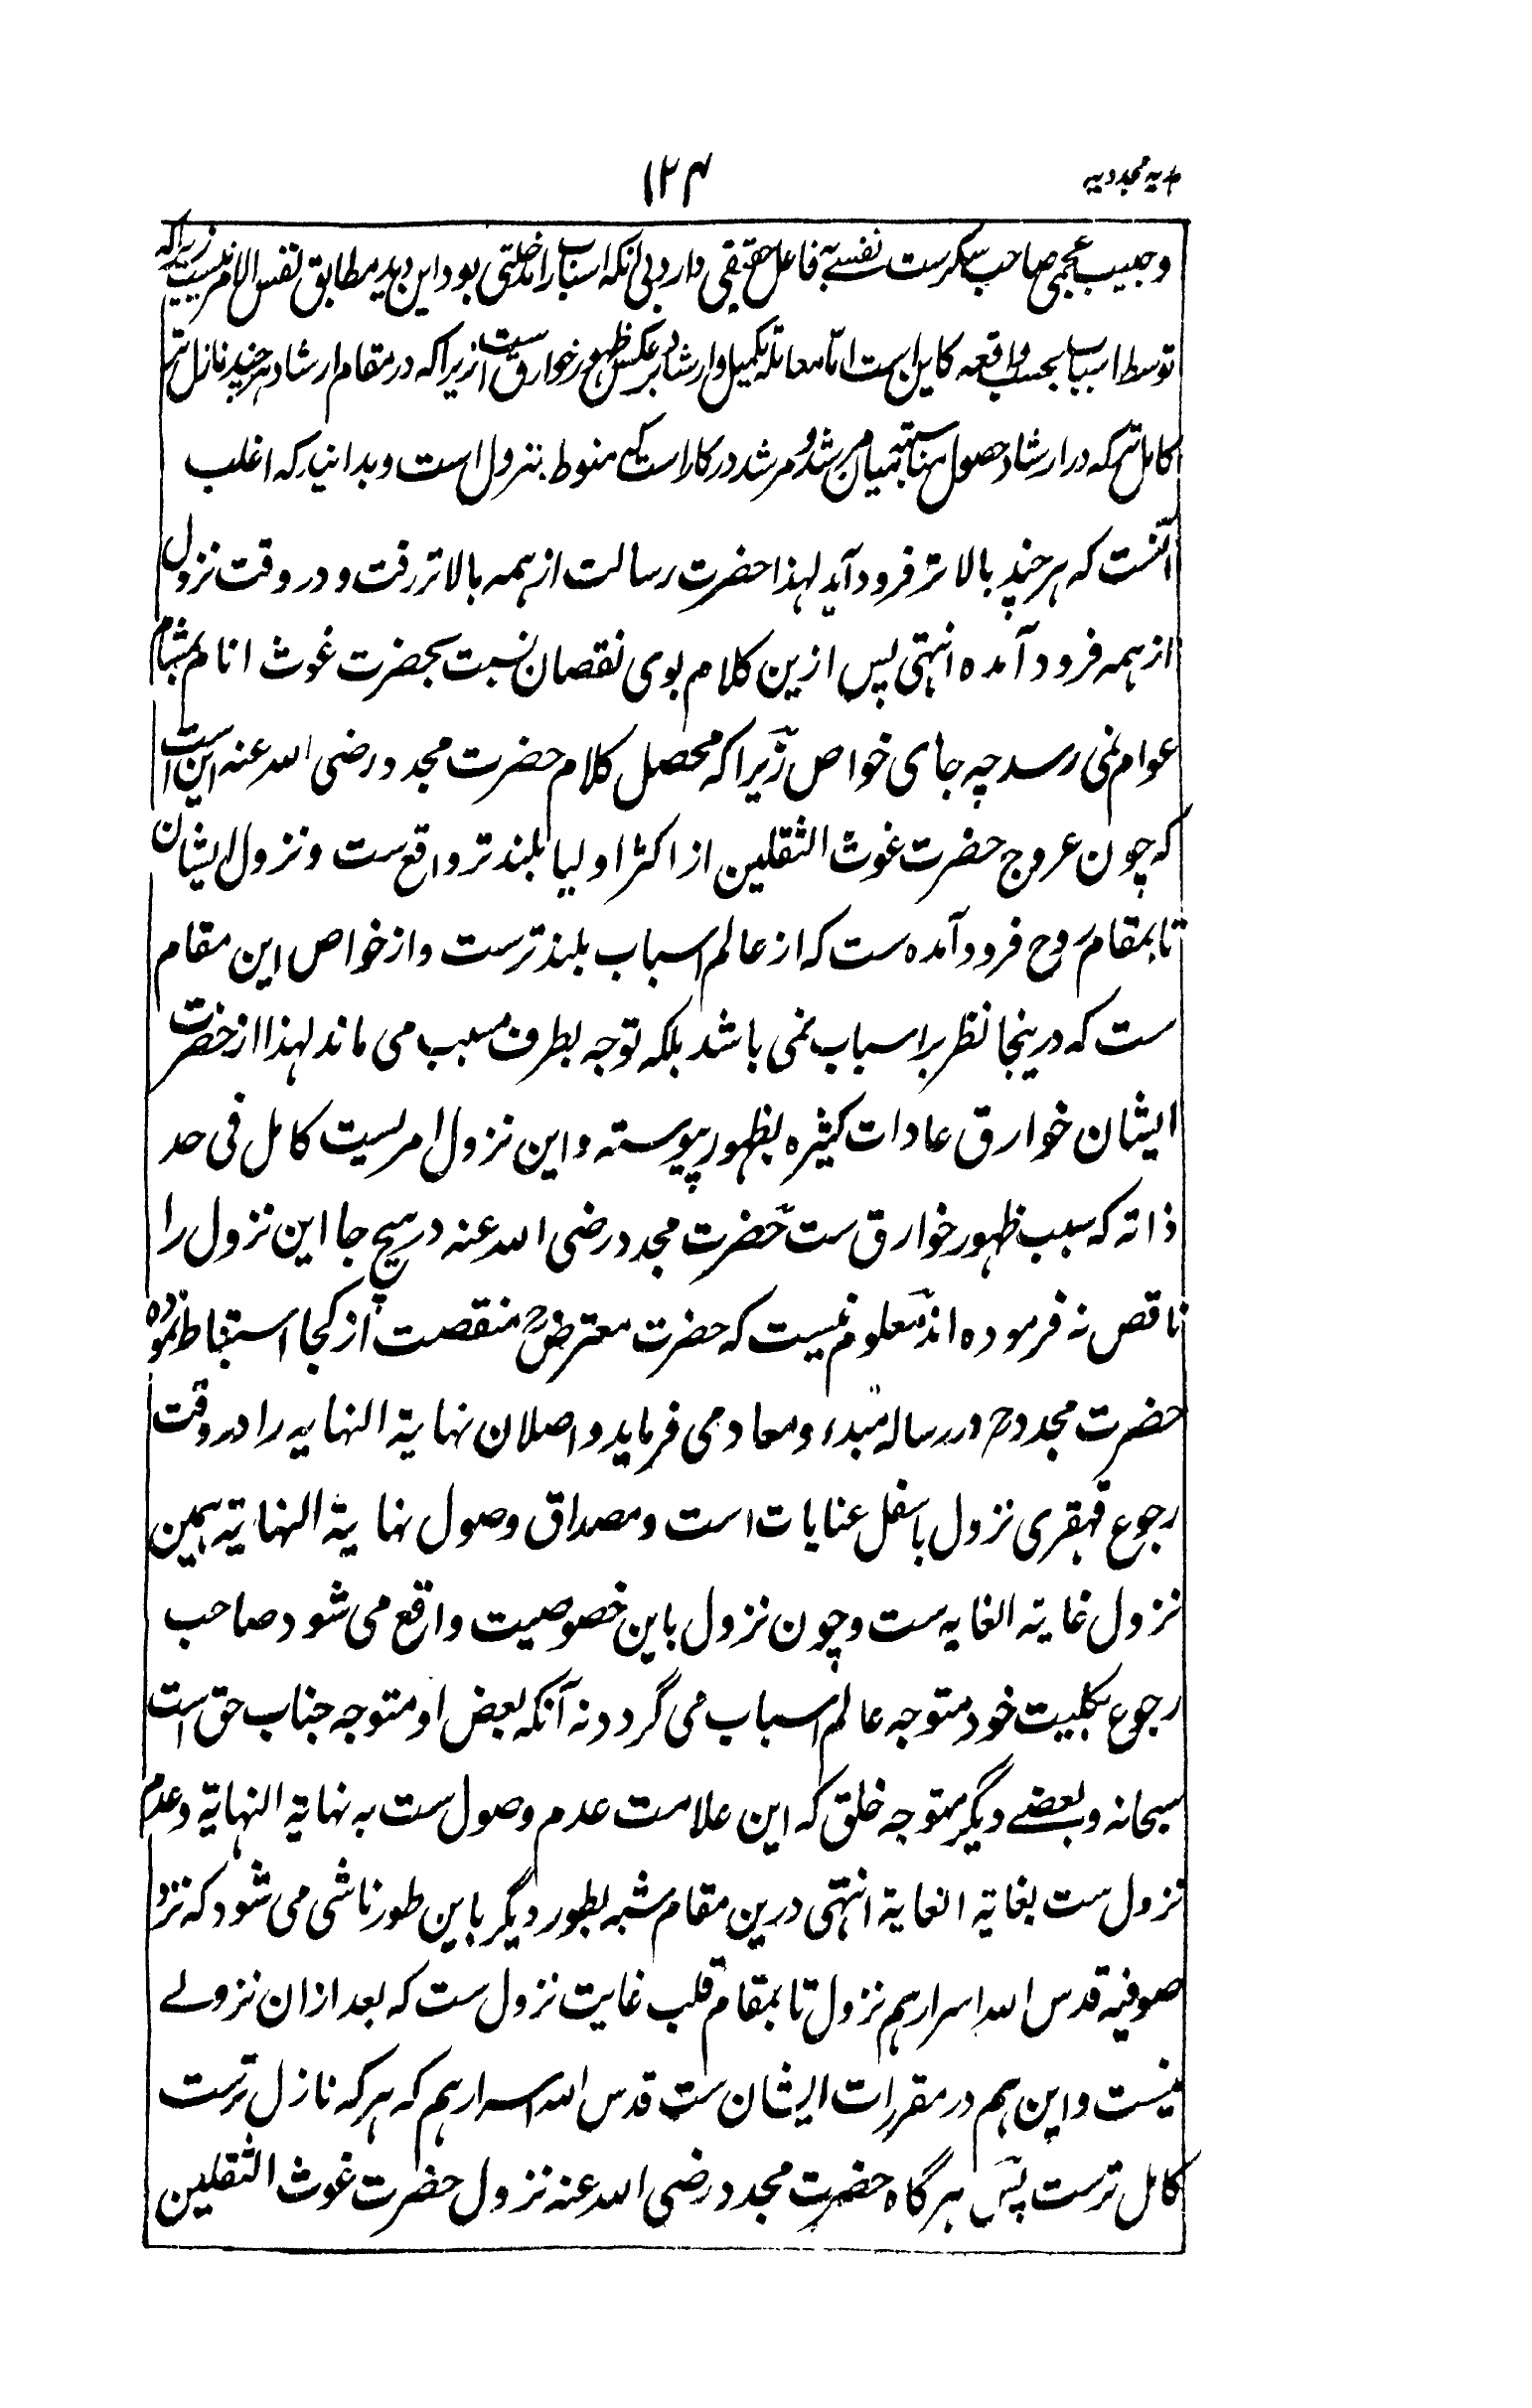 ہدیہ مجددیہ
۱۲۴
وحبیب عجمی صاحب سکرست نفسے بہ فاعل حقیقی دارد بی آنکہ اسباب را مدخلتی بود این دید مطابق نفس الامر نیست زیراکہ
توسط اسباب بحسب واقعہ کاین است اما معاملۂ تکمیل وارشاد بر عکس ظہور خوارق است ازیراکہ در مقام ارشاد ہر چند نازل تر
کامل تر کہ در ارشاد حصول مناسبت میان مرشد و مرشد درکار است کہ منوط بنزول است وبدانید کہ اغلب
آنست کہ ہر چند بالا تر فرود آید لہذا حضرت رسالت از ہمہ بالا تر رفت و در وقت نزول
از ہمہ فرود آمدہ انتہی پس ازین کلام بوی نقصان نسبت بحضرت غوث انام بمشام
عوام نمی رسد چہ جای خواص زیرا کہ محصل کلام حضرت مجدد رضی اللہ عنہ این است
کہ چون عروج حضرت غوث الثقلین از اکثر اولیا بلند تر واقع ست ونزول ایشان
تا بمقام روح فرود آمدہ ست کہ از عالم اسباب بلند ترست واز خواص این مقام
ست کہ درینجا نظر بر اسباب نمی باشد بلکہ توجہ بطرف مسبب می ماند لہذا از حضرت
ایشان خوارق عادات کثیرہ بظہور پیوستہ واین نزول امریست کامل فی حد
ذاتہ کہ سبب ظہور خوارق ست حضرت مجدد رضی اللہ عنہ در ہیچ جا این نزول را
ناقص نہ فرمودہ اند معلوم نیست کہ حضرت معترض منقصت از کجا استنباط نمودہ
حضرت مجدد در رسالہ مبدء ومعاد می فرماید واصلان نہایۃ النہایہ را در وقت
رجوع قہقری نزول باسفل عنایات است ومصداق وصول نہایۃ النہایۃ ہمین
نزول غایتہ الغایہ ست وچون نزول باین خصوصیت واقع می شود صاحب
رجوع بکلیت خود متوجہ عالم اسباب می گردد نہ آنکہ بعض او متوجہ جناب حق است
سبحانہ وبعضے دیگر متوجہ خلق کہ این علامت عدم وصول ست بہ نہایۃ النہایۃ وعدم
نزول ست بغایۃ الغایۃ انتہی درین مقام شبہ بطور دیگر باین طور ناشی می شود کہ نزد
صوفیہ قدس اللہ اسرارہم نزول تا بمقام قلب غایت نزول ست کہ بعد ازان نزولے
نیست واین ہم در مقررات ایشان ست قدس اللہ اسرارہم کہ ہر کہ نازل ترست
کامل ترست پس ہر گاہ حضرت مجدد رضی اللہ عنہ نزول حضرت غوث الثقلین